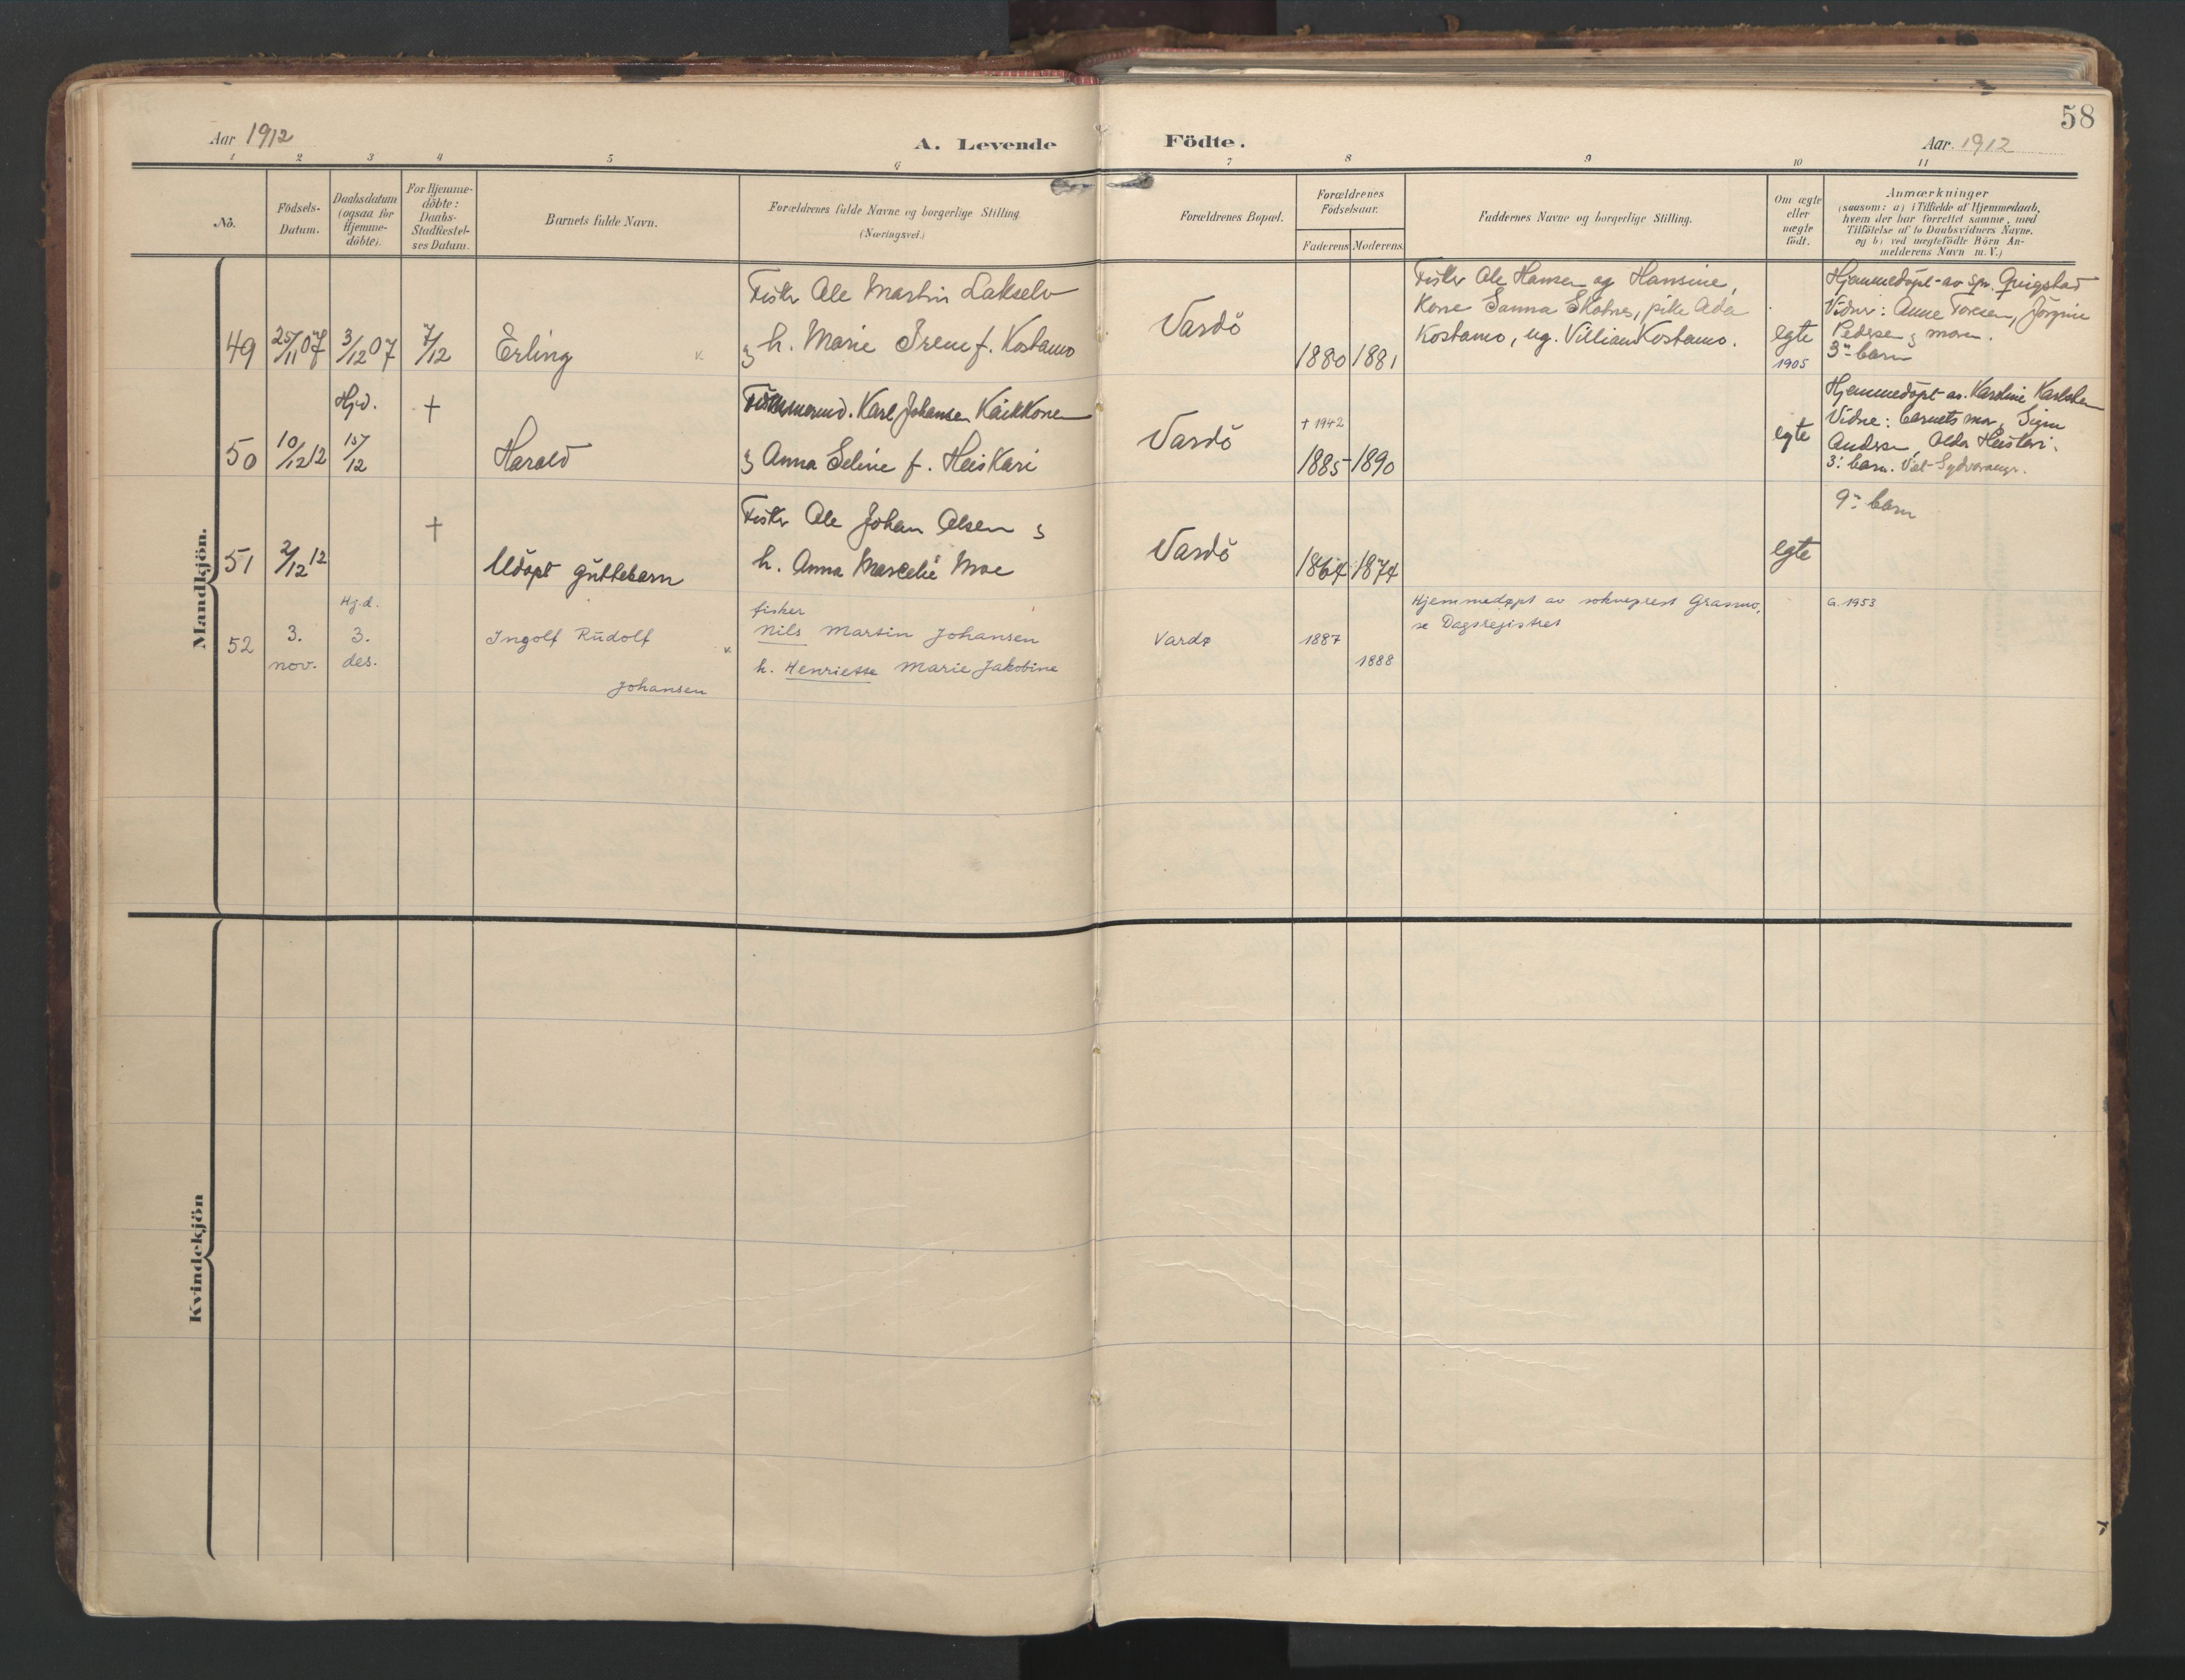 58
Aar 1912
A. Levende Födte.
Aar. 1912
1 2 3 4 5 6 7 8 9 10 11
No.
Födsels-
Datum.
Daabsdatum
(ogsaa for
Hjemme-
döbte).
For Hjemme-
döbte:
Daabs-
Stadfæstel-
ses Datum.
Barnets fulde Navn.
Forældrenes fulde Navne og borgerlige Stilling
(Næringsvei.)
Forældrenes Bopæl.
Forældrenes
Födselsaar.
Faderens Moderens
Faddernes Navne og borgerlige Stilling.
Om ægte
eller
uægte
födt.
Anmærkninger
(saasom: a) i Tilfælde af Hjemmedaab,
hvem der har forrettet samme, med
Tilföielse af to Daabsvidners Navne.
og b) ved uægtefödte Börn An-
melderens Navn m. V.)
Mandkjön.
49
25/11 07
3/12 07
7/12
Erling
v.
Fisker Ole Martin Lakselv
h. Marie Irene f. Kostamo
Vardö
1880 1881
Fisker Ole Hansen og Hansine,
Kone Sanna Skotnes, pike Ada
Kostamo, ug. Villiam Kostamo.
egte
1905
Hjemmedöpt av spr. Qvigstad
Vidner: Anne Toresen, Jörgine
Pedersen & moren.
3de barn
50
10/12 12
Hjd.
15/12
†
Harald
Karl Johansen Kaikkonen
& Anna Seline f. Heiskari
Vardö
† 1942
1885 1890
egte
Hjemmedöpt av Karoline Karlsen
Vidne: barnets mor, Signe
Andrsen, Alda Heiskari.
3. barn. Sydvaranger.
51
2/12 12
†
Udöpt guttebarn
Fisker Ole Johan Olsen &
h. Anna Marcelie Moe
Vardö
1864 1874
egte
9de barn
52
3.
nov.
Hj.d.
3.
des.
Ingolf Rudolf
Johansen
v.
fisker
Nils Martin Johansen
h. Henriette Marie Jakobine
Vardø
1887
1888
Hjemmedøpt av sokneprest Grasmo,
se Dagsregistret
G. 1953
Kvindekjön